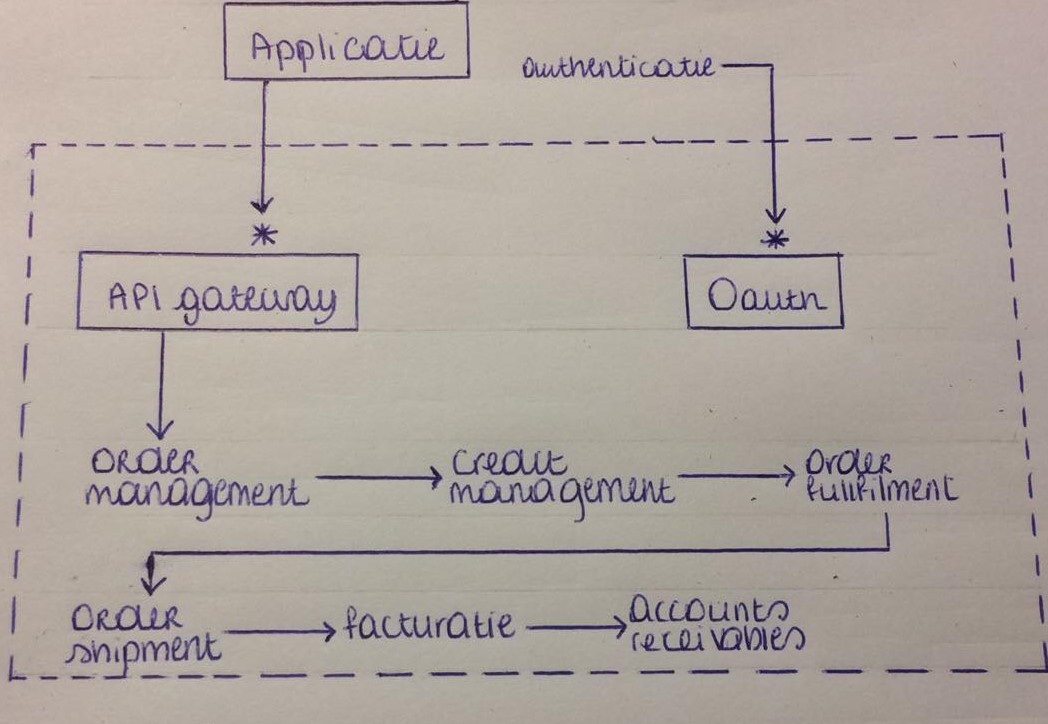 Applicatie
authenticatie
*
*
API gateway
Oauth
Order
management
credit
management
Order
fullfilment
Order
shipment
facturatie
accounts
receivables